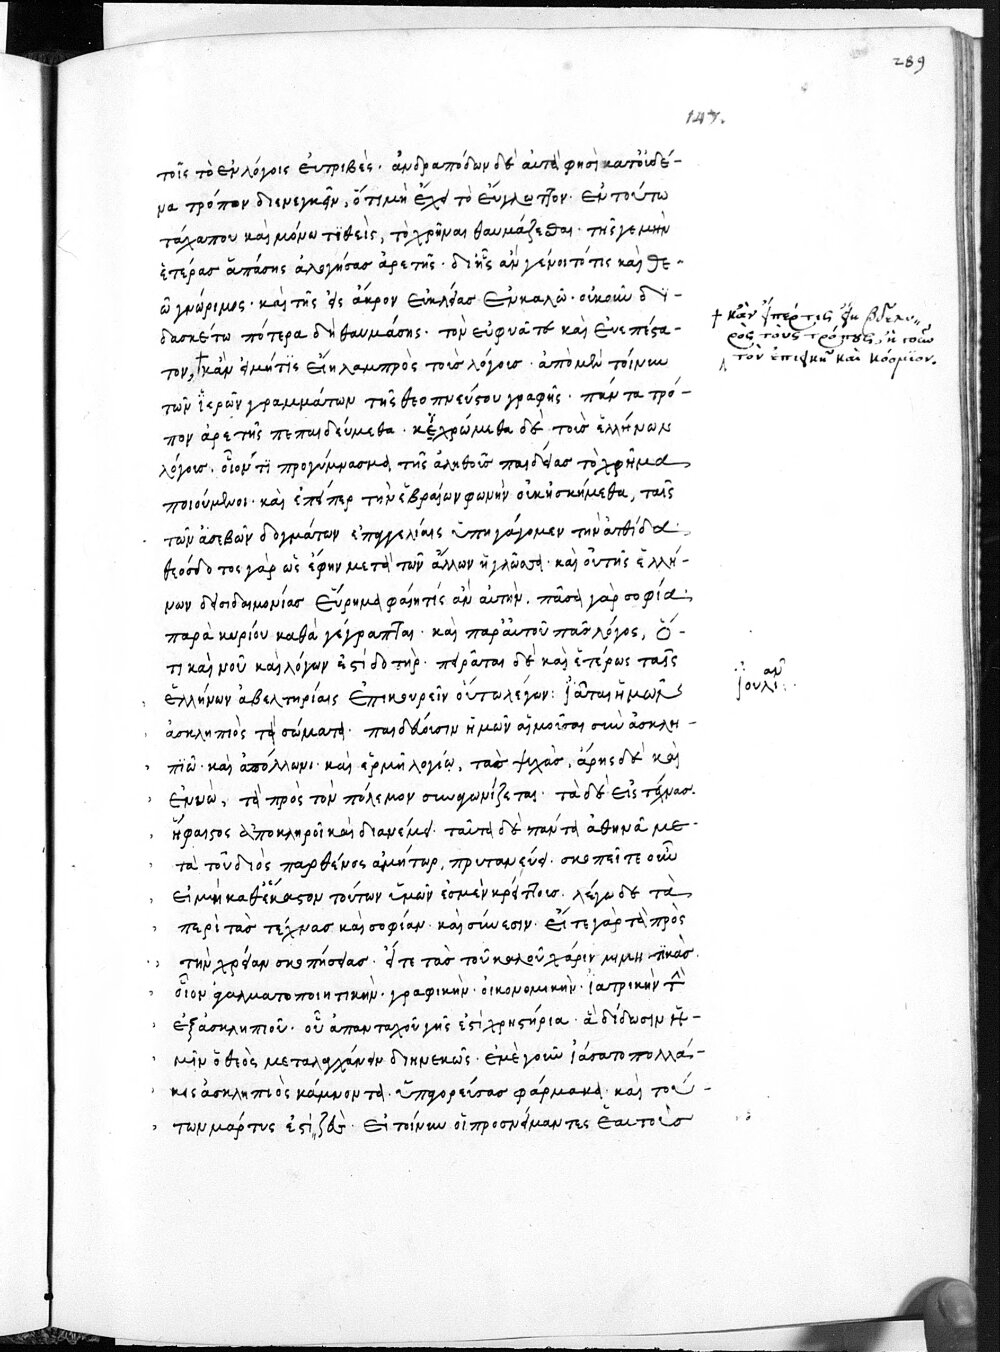 289
147.
τοῖς τὸ ἐν λόγοις ἐντριβὲς· ἀνδραπόδων δὲ αὐτὰ φησὶ κατ' οὐδέ-
να τρόπον διενεγκεῖν, ὅτι μὴ ἔχει τὸ εὔγλωττον· ἐν τούτω
τάχα που καὶ μόνω τιθεὶς, τὸ χρῆναι θαυμάζεσθαι· τῆς γε μὴν
ἑτέρας ἁπάσης ἀλογήσας ἀρετῆς· δι' ἧς ἂν γένοιτό τις καὶ θε-
ῶ γνώριμος· καὶ τῆς εἰς ἄκρον εὐκλείας ἐγκαλῶ· οὐκοῦν δι-
δασκέτω πότερα δὴ θαυμάσῃς· τὸν εὐφυᾶ τε καὶ εὐεπέστα-
τον, κἂν εἰ μήτις εἴη λαμπρὸς τοῖς λόγοις· ἀπὸ μὲν τοίνυν
τῶν ἱερῶν γραμμάτων τῆς θεοπνεύστου γραφῆς· πάντα τρό-
πον ἀρετῆς πεπαιδεύμεθα· κεχρώμεθα δὲ τοῖς ἑλλήνων
λόγοις· οἷόν τι προγύμνασμα τῆς ἀληθοῦς παιδείας τὸ χρῆμα
ποιούμενοι· καὶ ἐπείπερ τὴν ἑβραίων φωνὴν οὐκ ἠσκήμεθα, ταῖς
τῶν ἀσεβῶν δογμάτων ἐπαγγελίαις ὑπηγάγομεν τὴν ἀτθίδα·
θεόσδοτος γὰρ ὡς ἔφην μετὰ τῶν ἄλλων ἡ γλῶσσα· καὶ οὐ τῆς ἑλλή-
νων δεισιδαιμονίας εὕρημα φαίη τις ἂν αὐτὴν. πᾶσα γὰρ σοφία
παρὰ κυρίου καθὰ γέγραπται· καὶ παρ' αὐτοῦ πᾶς λόγος, ὅ-
τι καὶ νοῦ καὶ λόγων ἐστὶ δοτὴρ· πειρᾶται δὲ καὶ ἑτέρως ταῖς
ἑλλήνων ἀβελτηρίαις ἐπικουρεῖν οὕτω λέγων: ἰᾶται ἡμῶν
ἀσκληπιὸς τὰ σώματα· παιδεύουσιν ἡμῶν αἱ μοῦσαι σὺν ἀσκλη-
πιῶ· καὶ ἀπόλλωνι· καὶ ἑρμῆ λογίω, τὰς ψυχὰς, ἄρης δὲ καὶ
ἐνυὼ, τὰ πρὸς τὸν πόλεμον συναγωνίζεται· τὰ δὲ εἰς τέχνας·
ἥφαιστος ἀποκληροῖ καὶ διανέμει· ταῦτα δὲ πάντα ἀθηνᾶ με-
τὰ τοῦ διὸς παρθένος ἀμήτωρ, πρυτανεύει· σκοπεῖτε οὖν
εἰ μὴ καθ' ἕκαστον τούτων ὑμῶν ἐσμὲν κρείττους· λέγω δὲ τὰ
περὶ τὰς τέχνας καὶ σοφίαν· καὶ σύνεσιν· εἴτε γὰρ τὰ πρὸς
τὴν χρείαν σκοπήσειας· εἴτε τὰς τοῦ καλοῦ χάριν μιμητικὰς·
οἷον ἀγαλματοποιητικὴν· γραφικὴν· οἰκονομικὴν· ἰατρικὴν τὴν
ἐξ ἀσκληπιοῦ· οὗ ἁπανταχοῦ γῆς ἐστὶ χρηστήρια· ἃ δίδωσιν ἡ-
μῖν ὁ θεὸς μεταλαγχάνειν διηνεκῶς· ἐμὲ γοῦν ἰάσατο πολλά-
κις ἀσκληπιὸς κάμνοντα· ὑπαγορεύσας φάρμακα· καὶ τού-
των μάρτυς ἐστὶ ζεὺς· εἰ τοίνυν οἱ προσνείμαντες ἑαυτοὺς
+ κἂν εἴπερ τις εἴη βδελυ-
ρὸς τοὺς τρόπους, ἢ τοῦ
τὸν ἐπιεικῆ καὶ κόσμιον.
ἰουλιαν